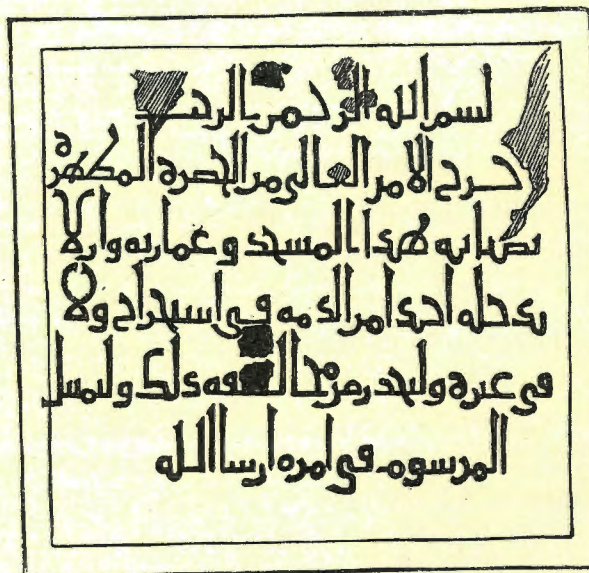 بسم الله الرحمن الرحيم
خرج الامر العالى من الحضرة المطهرة
بصيانة هذا المسجد وعمارته وان لا
يدخله احدا من الذمه فى استخراج ولا
فى غيره وليحذر من مخالفه ذلك وليمتثل
المرسوم فى امره ان شا الله